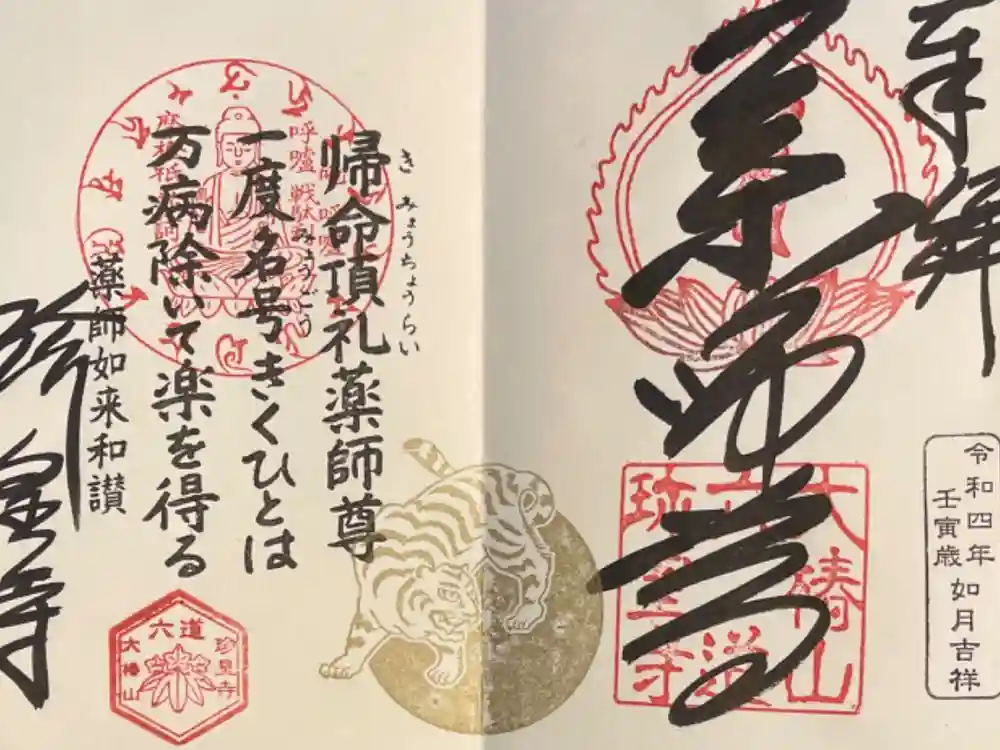 奉拝
薬師尊
大椿山
六道
珍皇寺
令和四年
壬寅歳
如月吉祥
帰命頂礼薬師尊
きみょうちょうらい
一度名号きくひとは
みょうごう
万病除いて楽を得る
薬師如来和讃
珍皇寺
六道
珍皇寺
大椿山